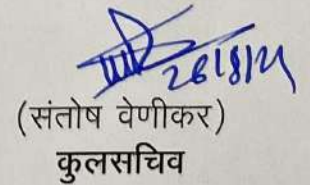 26/8/24
(संतोष वेणीकर)
कुलसचिव